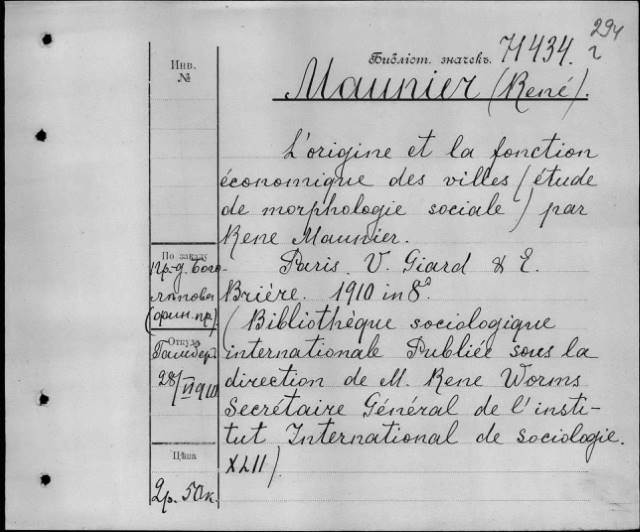 294
Библіот. значекъ. Н 434. г
Инв. №
Maunier (René).
L'origine et la fonction
économique des villes (étude
de morphologie sociale) par
Rene Maunier.
Paris. V. Giard & E.
Brière. 1910 in 8º
(Bibliothèque sociologique
internationale Publiée sous la
direction de M. Rene Worms
Secrétaire Général de l'insti-
tut International de sociologie.
XLII).
По заказу
Пр-д. Бого-
лѣпова
(фин. пр)
Откуда
28/VI 1910
Цѣна
2р. 50к.